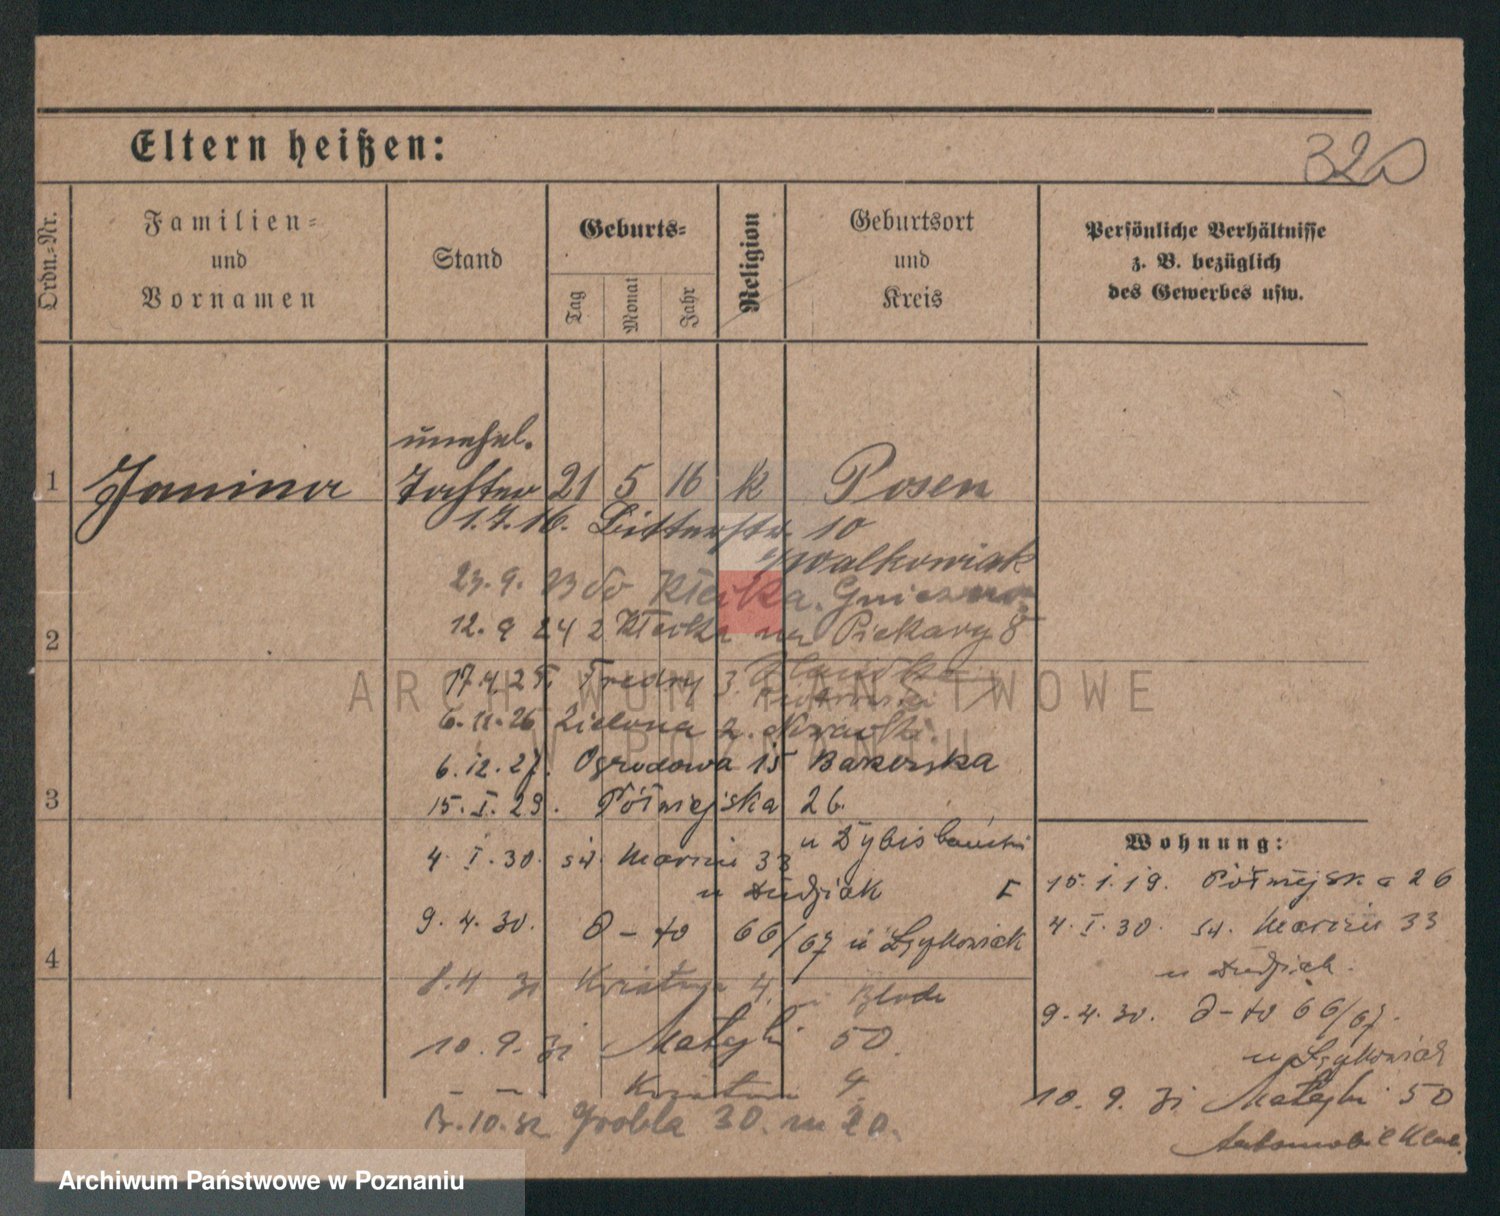 Eltern heißen:
320
Ordn.=Nr.
Familien=
und
Vornamen
Stand
Geburts=
Tag
Monat
Jahr
Religion
Geburtsort
und
Kreis
Persönliche Verhältnisse
z. B. bezüglich
des Gewerbes usw.
unehel.
1 Janina Tochter 21 5 16 k Posen
1.7.16. Bitterstr. 10
Walkowiak
23.9. Kłecka. Gniezno
2
12.9 24 z Kłecka na Piekary 8
17.4.25. Fredry 3.
6.11.26 Zielona 2. Nowacki.
6.12.27. Ogrodowa 15
3
15.I.29. Półwiejska 26.
4.I.30. św. Marcin 33
u Dudziak
9.4.30. d-to 66/67 u
4
8.4 31 Kwiatowa 4.
10.9.31 Matejki 50.
— — Kwiatowa 4
10.32 Grobla 30. m 20.
Wohnung:
15.1.19. Półwiejska 26
4.I.30. św. Marcin 33
u Dudziak.
9.4.30. d-to 66/67.
u
10.9.31 Matejki 50
Automobilklub.
ARCHIWUM PAŃSTWOWE
W POZNANIU
Archiwum Państwowe w Poznaniu